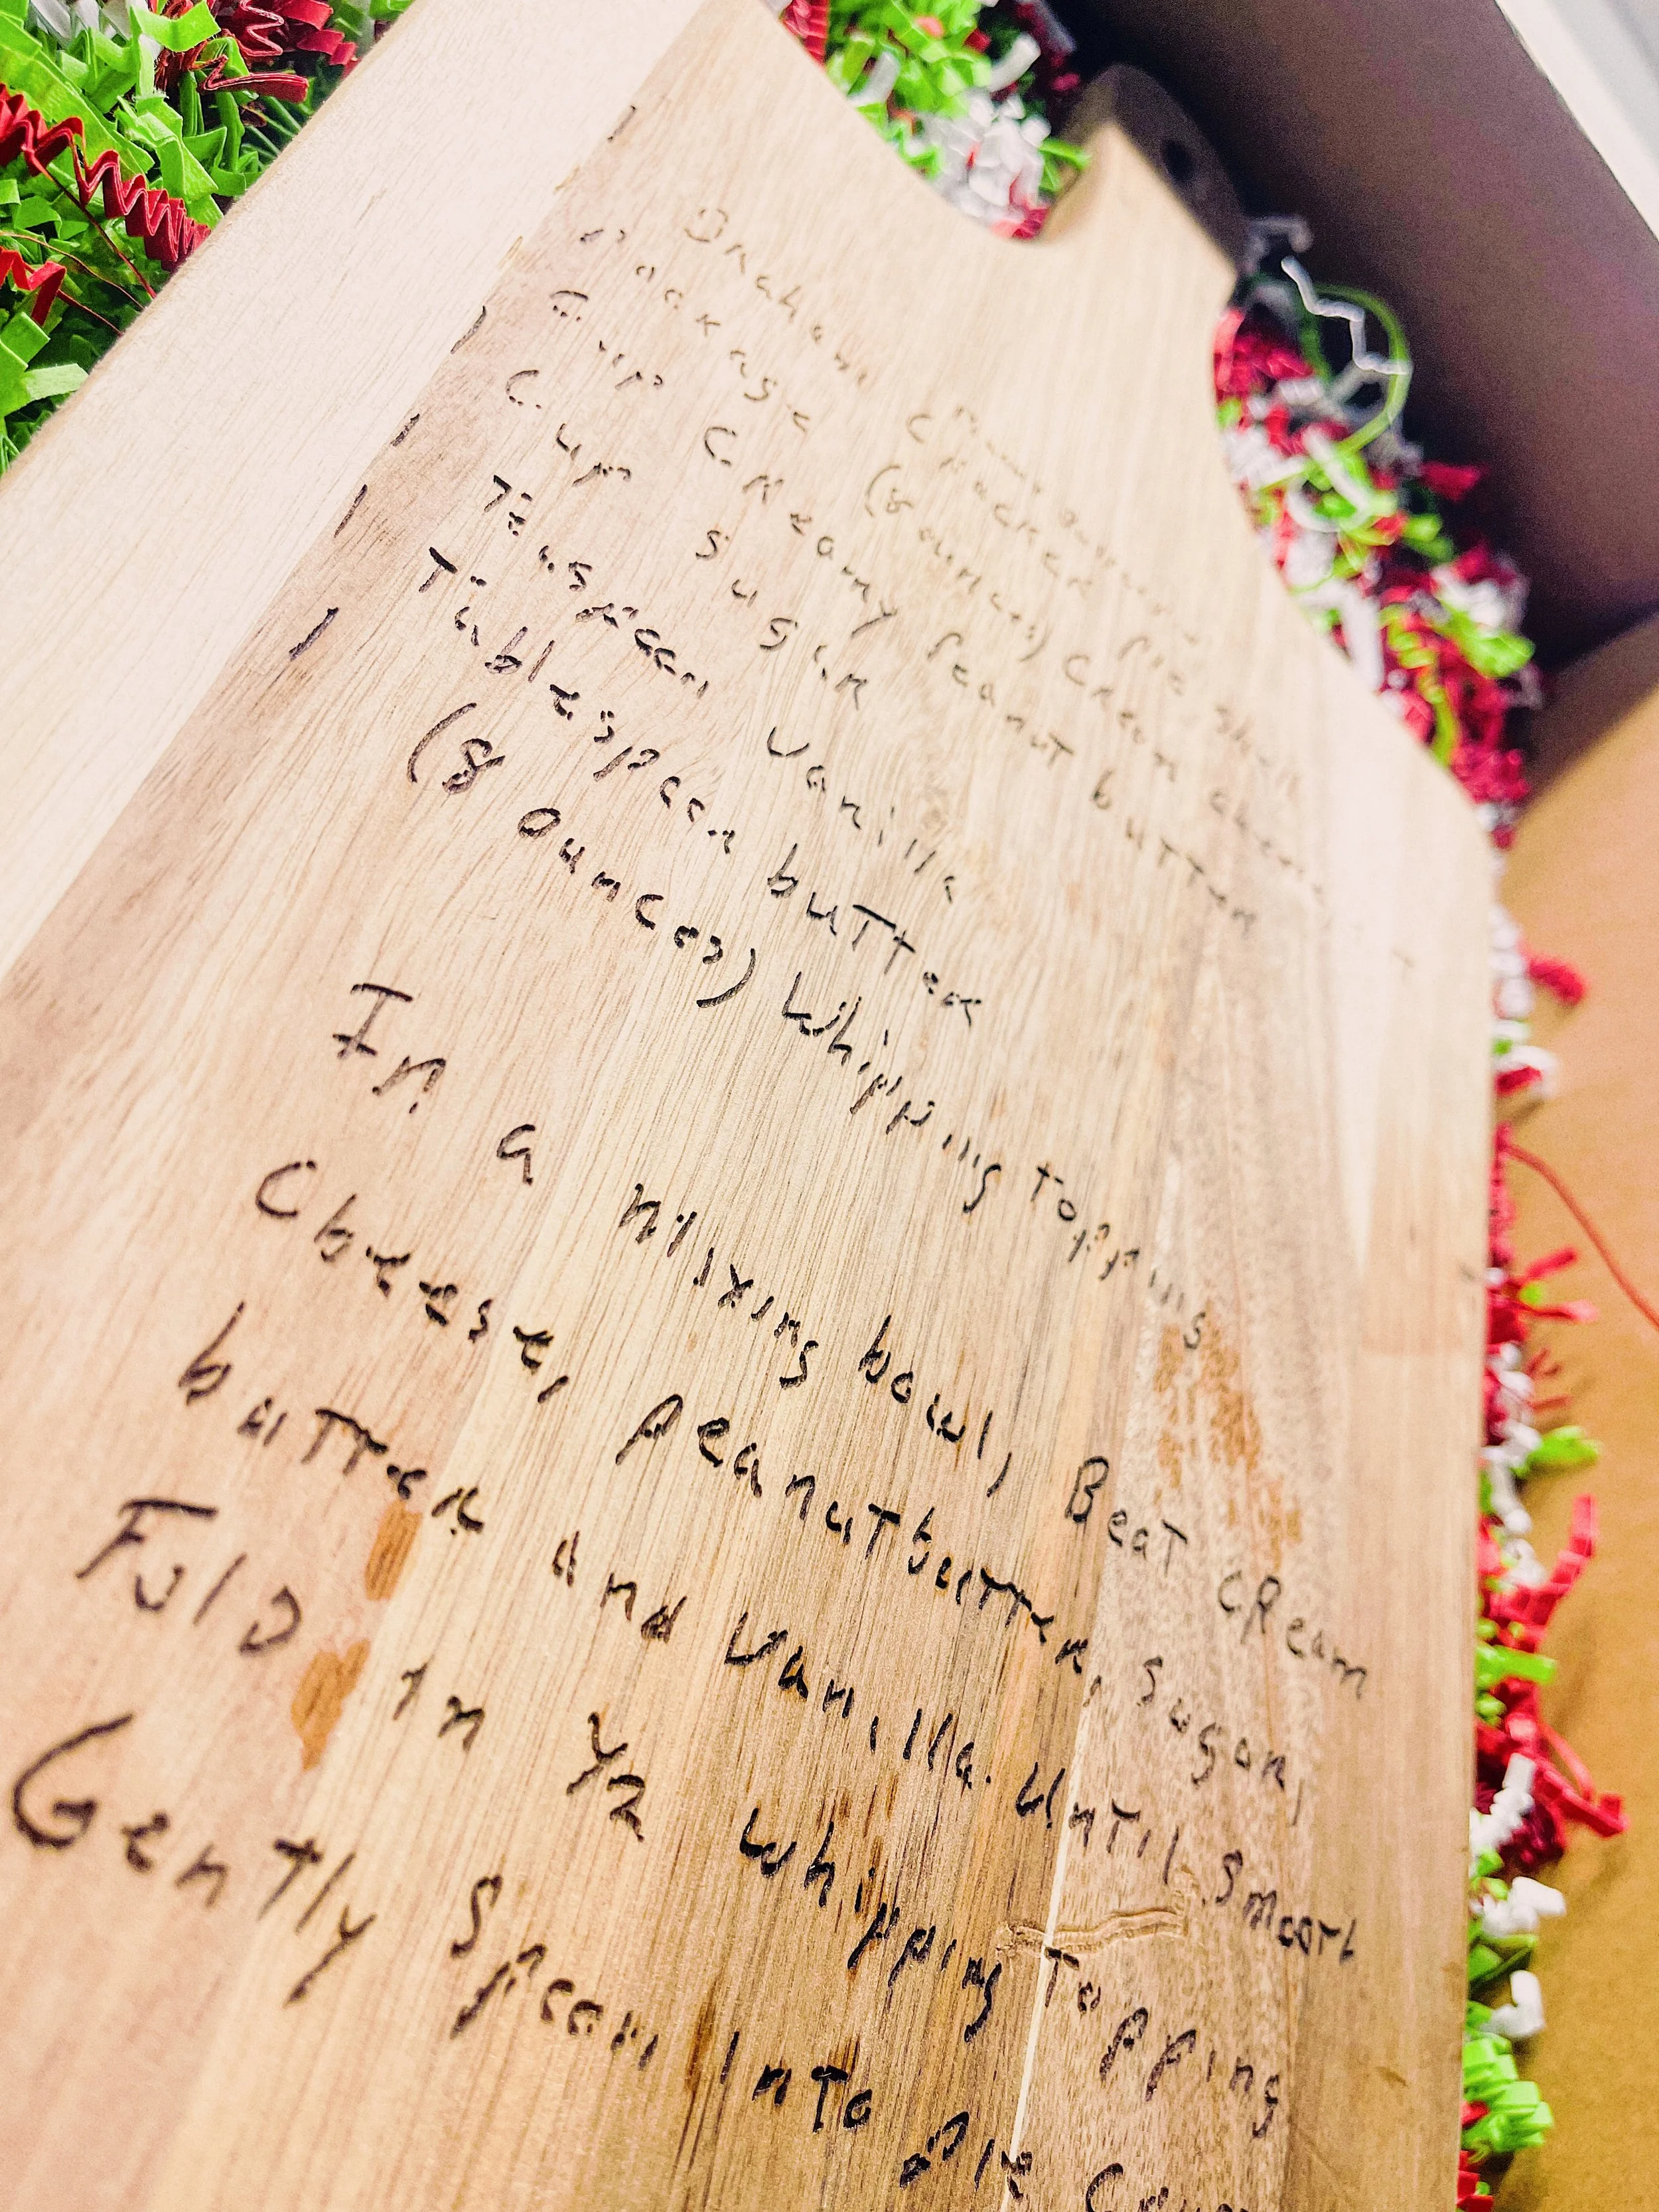 1 Graham Cracker Pie Shell
1 Package (8 ounces) Cream cheese
1 Cup Creamy Peanut butter
1 Cup Sugar
1 Teaspoon Vanilla
1 Tablespoon butter
1 (8 ounces) Whipping Topping
In a Mixing bowl, Beat cream
Cheese, Peanut butter, Sugar,
butter and Vanilla Until Smooth
Fold in 1/2 whipping Topping
Gently Spoon Into Pie